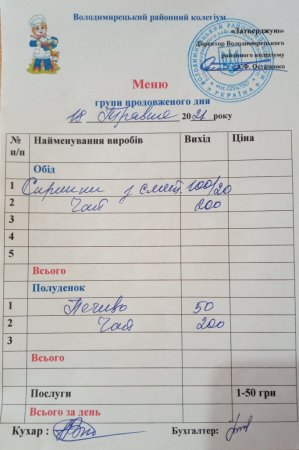 Володимирецький районний колегіум
«Затверджую»
Директор Володимирецького
районного колегіуму
А.Ф. Остапенко
Меню
групи продовженого дня
18 Травня 2021 року
№ п/п Найменування виробів Вихід Ціна
Обід
1 Сирники з смет. 100/20
2 Чай 200
3
4
5
Всього
Полуденок
1 Печиво 50
2 Чай 200
3
Всього
Послуги 1-50 грн
Всього за день
Кухар : Бухгалтер: